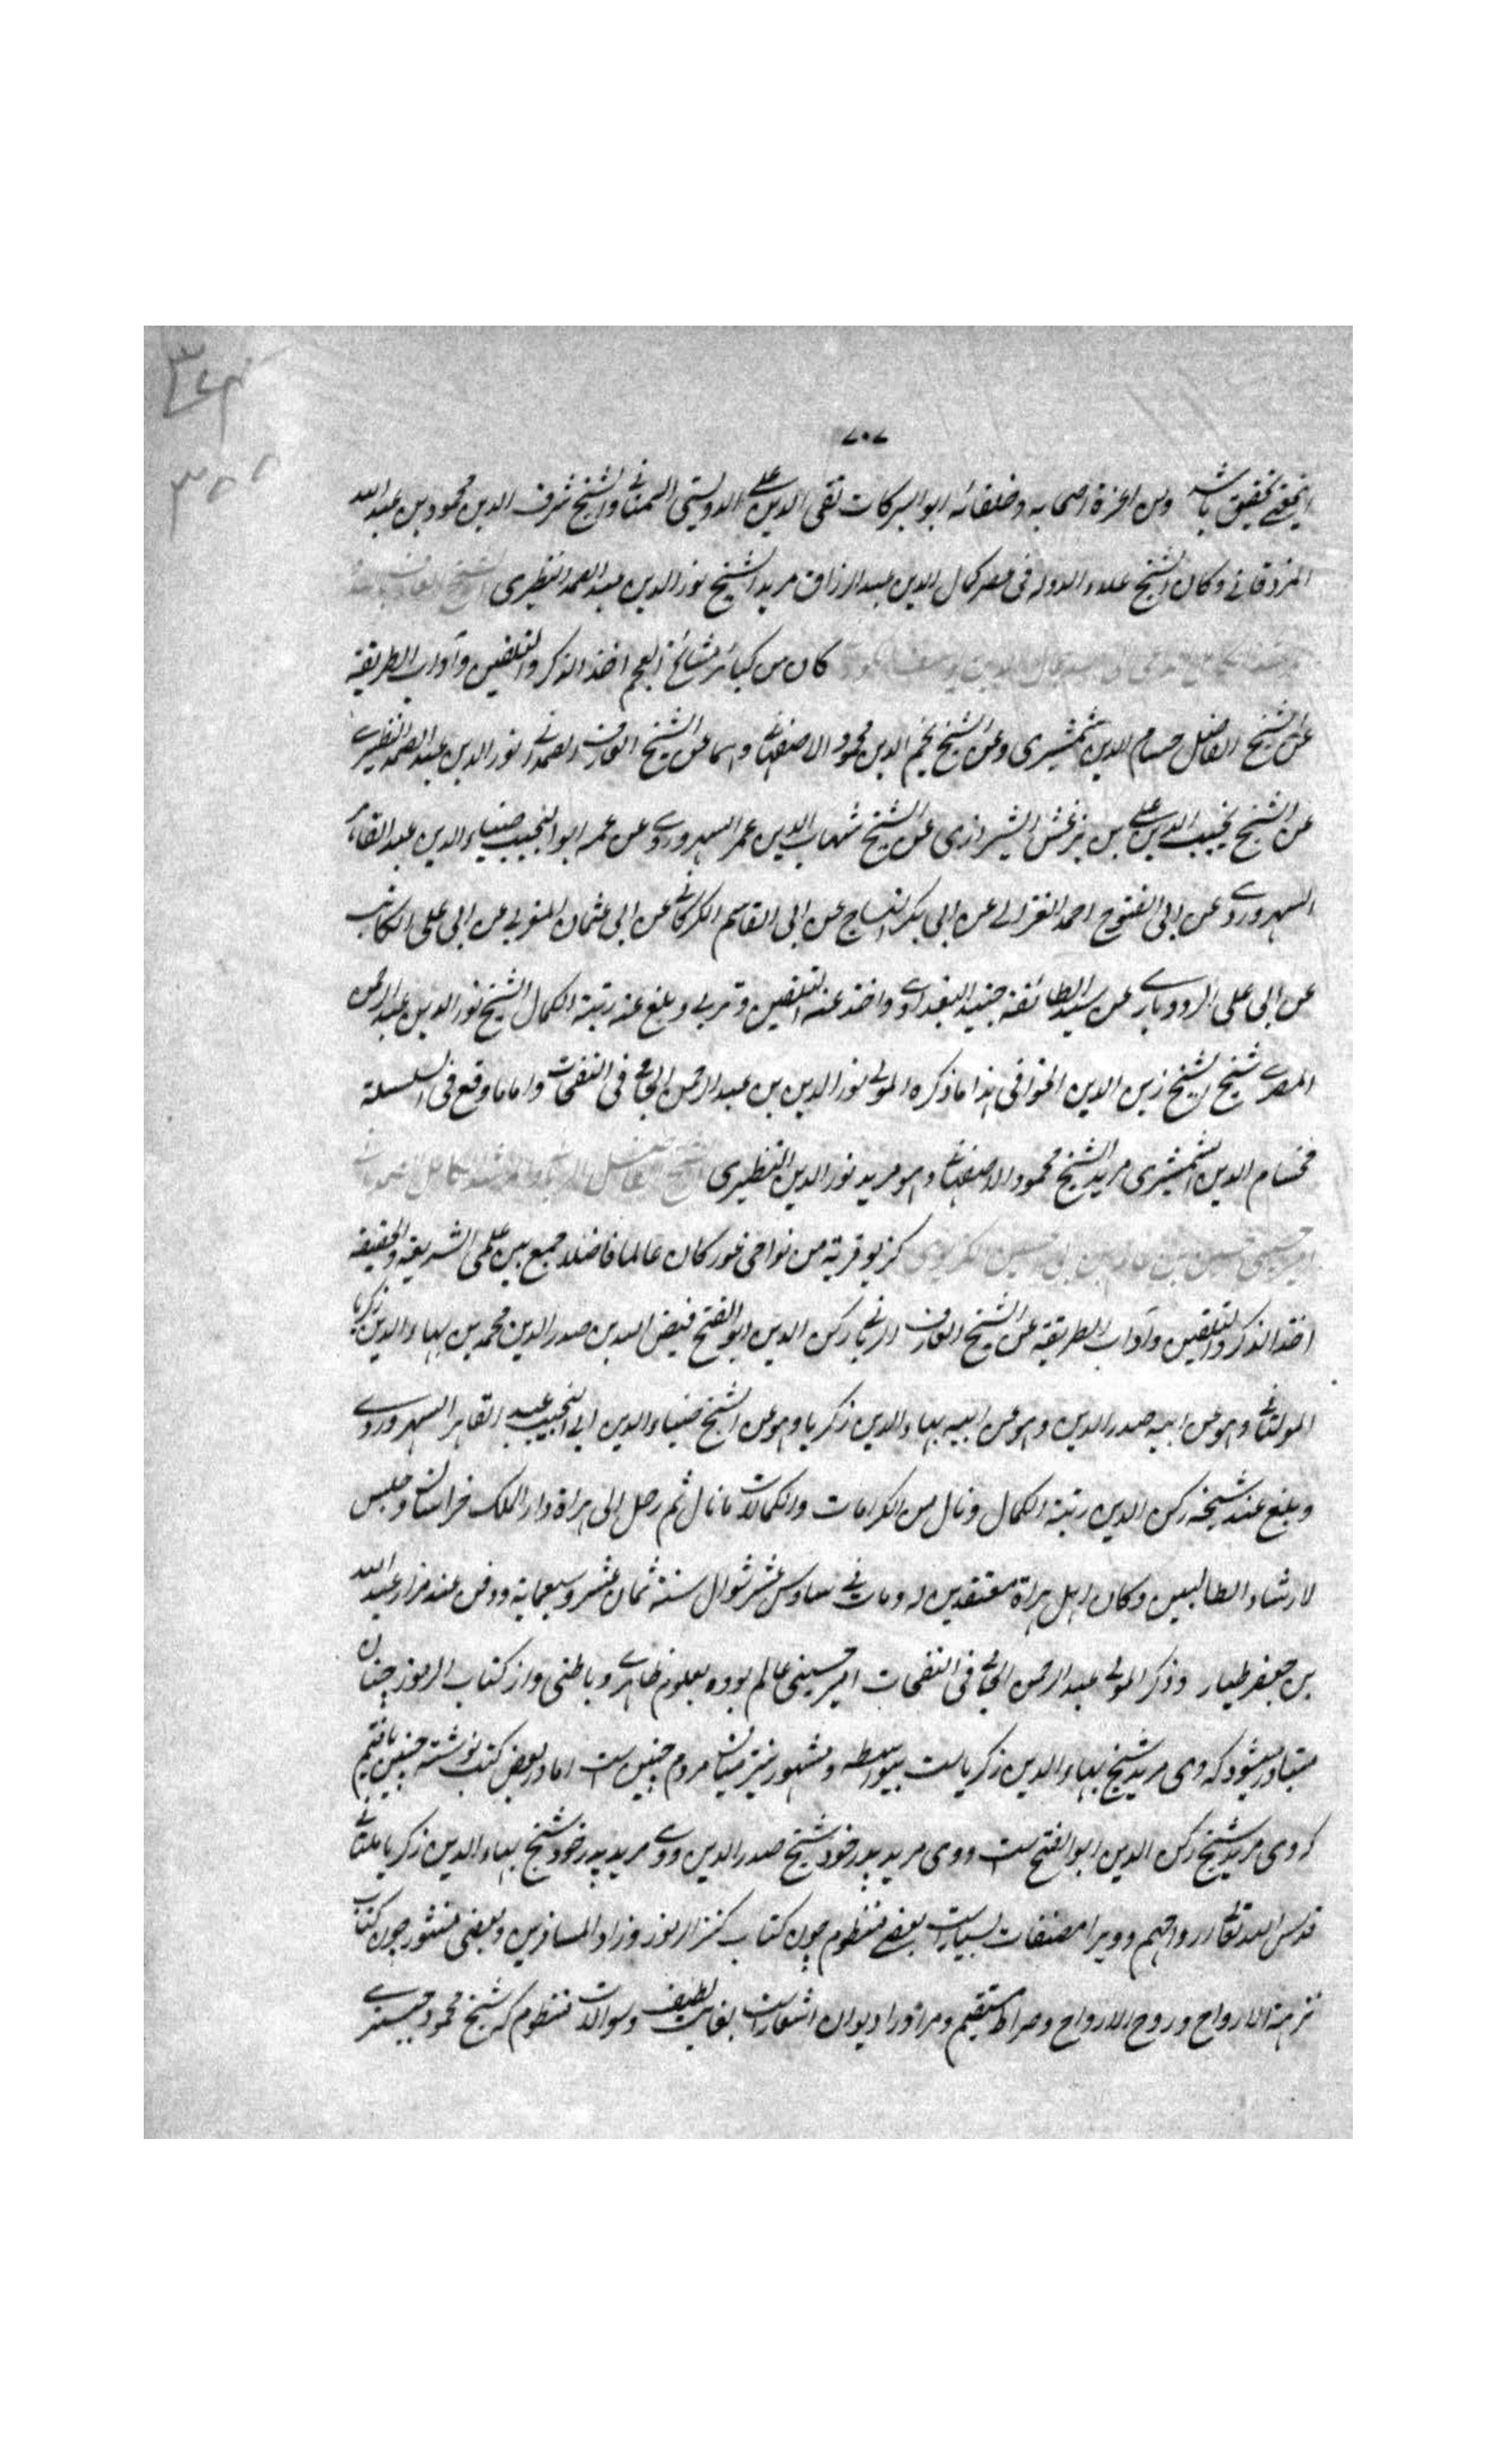 ٧٠٧
ومن اعزة اصحابه وخلفائه ابو البركات تقى الدين على الدوستى السمنانى والشيخ شرف الدين محمود بن عبد الله
المزدقانى وكان الشيخ علاء الدوله فى عصر كمال الدين عبد الرزاق مريد الشيخ نور الدين عبد الصمد النطيرى
كان من كبائر مشائخ العجم اخذ الذكر والتلقين وآداب الطريقة
عن الشيخ الفاضل حسام الدين الشمشيرى وعن الشيخ نجم الدين محمود الاصفهانى وهما عن الشيخ العارف الصمدانى نور الدين عبد الصمد النطيرى
عن الشيخ نجيب الدين على بن بزغش الشيرازى عن الشيخ شهاب الدين عمر السهروردى وعن عمه ابو النجيب ضياء الدين عبد القاهر
السهروردى عن ابى الفتوح احمد الغزالى عن ابى بكر النساج عن ابى القاسم الكركانى عن ابى عثمان المغربى عن ابى على الكاتب
عن ابى على الرودبارى عن سيد الطائفة جنيد البغدادى واخذ عنه التلقين وتربى وبلغ عنه رتبة الكمال الشيخ نور الدين عبد الرحمن
المصرى شيخ الشيخ زين الدين الخوافى هذا ما ذكره المولى نور الدين بن عبد الرحمن الجامى فى النفحات واما ما وقع فى السلسلة
فحسام الدين الشمشيرى مريد الشيخ محمود الاصفهانى وهو مريد نور الدين النطيرى
كزيو قرية من نواحى غور كان عالما فاضلا جمع بين علمى الشريعة والحقيقة
اخذ الذكر والتلقين وآداب الطريقة عن الشيخ العارف الربانى ركن الدين ابو الفتح فيض الله بن صدر الدين محمد بن بهاء الدين زكريا
المولتانى وهو عن ابيه صدر الدين وهو عن ابيه بهاء الدين زكريا وهو عن الشيخ ضياء الدين ابى النجيب عبد القاهر السهروردى
وبلغ عند شيخه ركن الدين رتبة الكمال ونال من الكرامات والكمالات ما نال ثم رحل الى هراة دار الملك خراسان وجلس
لارشاد الطالبين وكان اهل هراة معتقدين له ومات فى سادس عشر شوال سنة ثمان عشر وسبعماية ودفن عند مزار عبد الله
بن جعفر طيار وذكر المولى عبد الرحمن الجامى فى النفحات امير حسينى عالم بوده بعلوم ظاهرى وباطنى واز كتاب الرموز چنان
متبادر ميشود كه وى مريد شيخ بهاء الدين زكرياست بيواسطه ومشهور نيز ميان مردم چنين ست اما در بعض كتب نوشته چنين يافتيم
كه وى مريد شيخ ركن الدين ابو الفتح ست ووى مريد پدر خود شيخ صدر الدين ووى مريد پدر خود شيخ بهاء الدين زكريا ملتانى
قدس الله تعالى ارواحهم وويرا مصنفات بسيارست بعضى منظوم چون كتاب كنز الرموز وزاد المسافرين وبعضى منثور چون كتاب
نزهة الارواح وروح الارواح وصراط مستقيم ومر اورا ديوان اشعارست بغايت لطيف وسوالات منظوم كه شيخ محمود